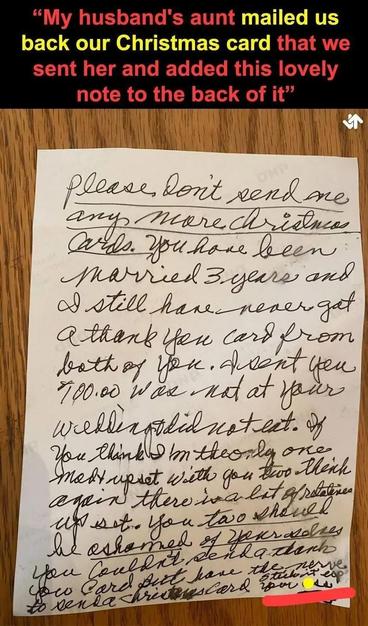 “My husband's aunt mailed us
back our Christmas card that we
sent her and added this lovely
note to the back of it”
Please, Don't send me
any more Christmas
Cards. You have been
married 3 years and
I still have never got
a thank you card from
both of you. I sent you
$100.00 was not at your
wedding & did not eat. If
You think I'm the only one
mad & upset with you two think
again there is a lot of relatives
upset. You two should
be ashamed of yourselves
you couldn't send a thank
you Card But have the nerve
to send a Christmas Card your
Stick it up